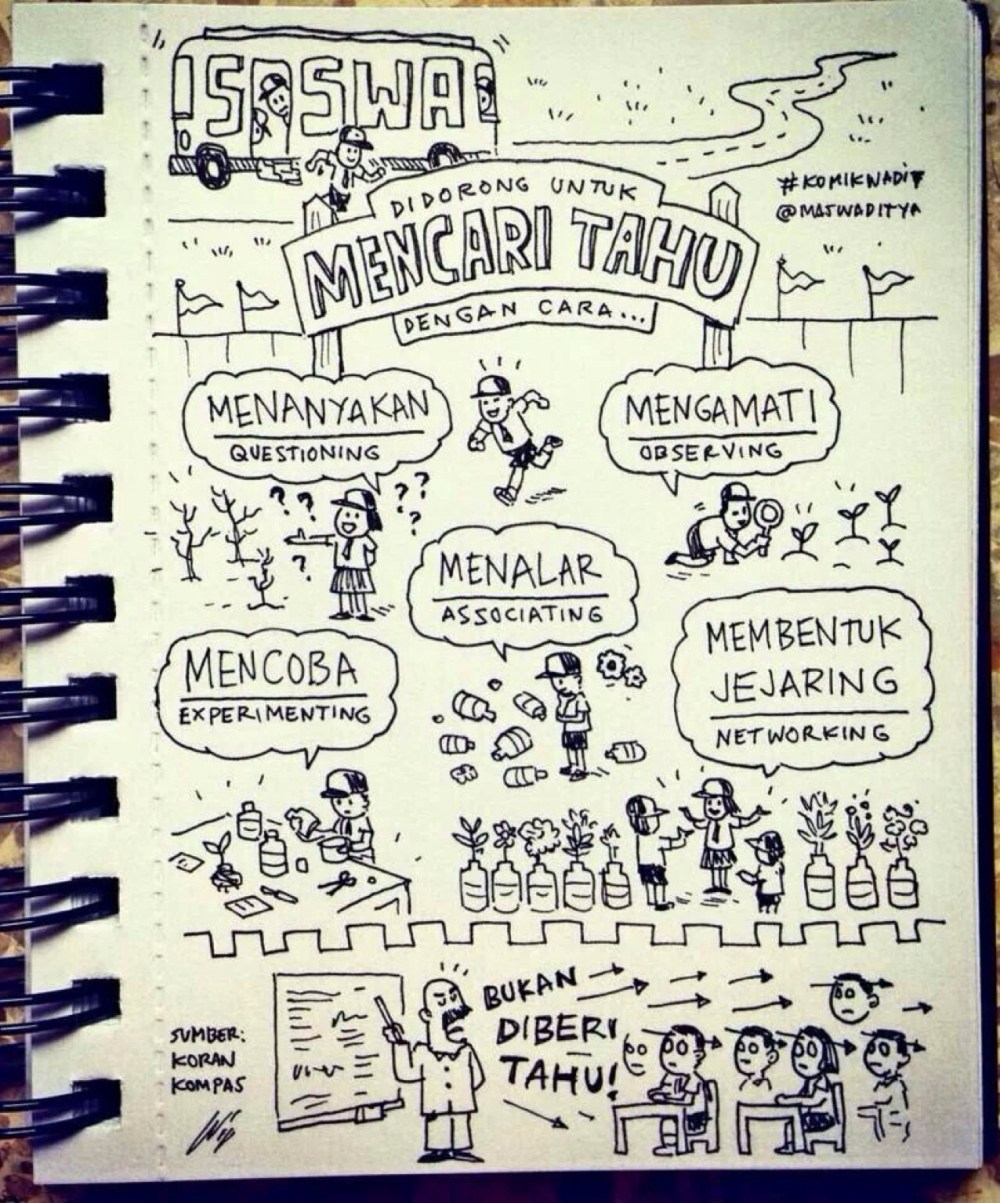 SISWA
#KOMIKNADIF
@MASWADITYA
DIDORONG UNTUK
MENCARI TAHU
DENGAN CARA...
MENANYAKAN
QUESTIONING
MENGAMATI
OBSERVING
? ? ? ? ? ? ?
MENALAR
ASSOCIATING
MENCOBA
EXPERIMENTING
MEMBENTUK
JEJARING
NETWORKING
BUKAN
DIBERI
TAHU!
SUMBER:
KORAN
KOMPAS